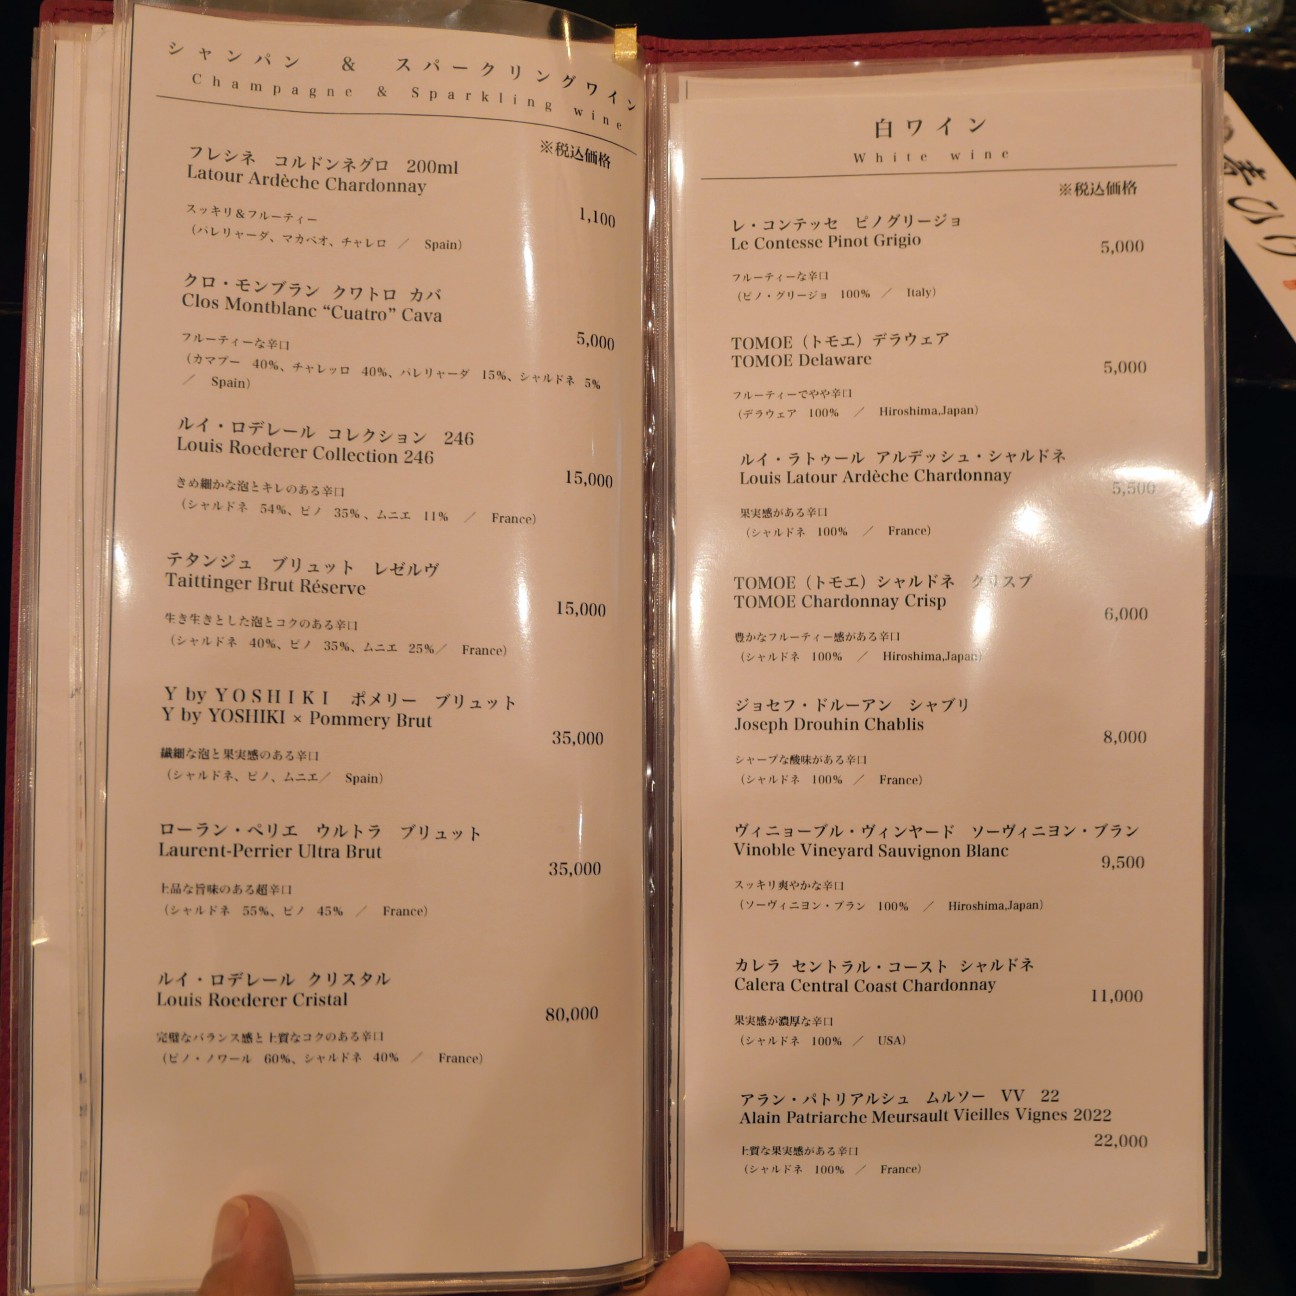 シャンパン ＆ スパークリングワイン
Champagne & Sparkling wine
※税込価格
フレシネ コルドンネグロ 200ml
Latour Ardèche Chardonnay
1,100
スッキリ＆フルーティー
（パレリャーダ、マカベオ、チャレロ ／ Spain）
クロ・モンブラン クワトロ カバ
Clos Montblanc “Cuatro” Cava
5,000
フルーティーな辛口
（カマブー 40%、チャレッロ 40%、パレリャーダ 15%、シャルドネ 5%
／ Spain）
ルイ・ロデレール コレクション 246
Louis Roederer Collection 246
15,000
きめ細かな泡とキレのある辛口
（シャルドネ 54%、ピノ 35% 、ムニエ 11% ／ France）
テタンジュ ブリュット レゼルヴ
Taittinger Brut Réserve
15,000
生き生きとした泡とコクのある辛口
（シャルドネ 40%、ピノ 35%、ムニエ 25%／ France）
Y by YOSHIKI ポメリー ブリュット
Y by YOSHIKI × Pommery Brut
35,000
繊細な泡と果実感のある辛口
（シャルドネ、ピノ、ムニエ／ Spain）
ローラン・ペリエ ウルトラ ブリュット
Laurent-Perrier Ultra Brut
35,000
上品な旨味のある超辛口
（シャルドネ 55%、ピノ 45% ／ France）
ルイ・ロデレール クリスタル
Louis Roederer Cristal
80,000
完璧なバランス感と上質なコクのある辛口
（ピノ・ノワール 60%、シャルドネ 40% ／ France）
白ワイン
White wine
※税込価格
レ・コンテッセ ピノグリージョ
Le Contesse Pinot Grigio
5,000
フルーティーな辛口
（ピノ・グリージョ 100% ／ Italy）
TOMOE（トモエ）デラウェア
TOMOE Delaware
5,000
フルーティーでやや辛口
（デラウェア 100% ／ Hiroshima,Japan）
ルイ・ラトゥール アルデッシュ・シャルドネ
Louis Latour Ardèche Chardonnay
5,500
果実感がある辛口
（シャルドネ 100% ／ France）
TOMOE（トモエ）シャルドネ クリスプ
TOMOE Chardonnay Crisp
6,000
豊かなフルーティー感がある辛口
（シャルドネ 100% ／ Hiroshima,Japan）
ジョセフ・ドルーアン シャブリ
Joseph Drouhin Chablis
8,000
シャープな酸味がある辛口
（シャルドネ 100% ／ France）
ヴィニョーブル・ヴィンヤード ソーヴィニヨン・ブラン
Vinoble Vineyard Sauvignon Blanc
9,500
スッキリ爽やかな辛口
（ソーヴィニヨン・ブラン 100% ／ Hiroshima,Japan）
カレラ セントラル・コースト シャルドネ
Calera Central Coast Chardonnay
11,000
果実感が濃厚な辛口
（シャルドネ 100% ／ USA）
アラン・パトリアルシュ ムルソー VV 22
Alain Patriarche Meursault Vieilles Vignes 2022
22,000
上質な果実感がある辛口
（シャルドネ 100% ／ France）